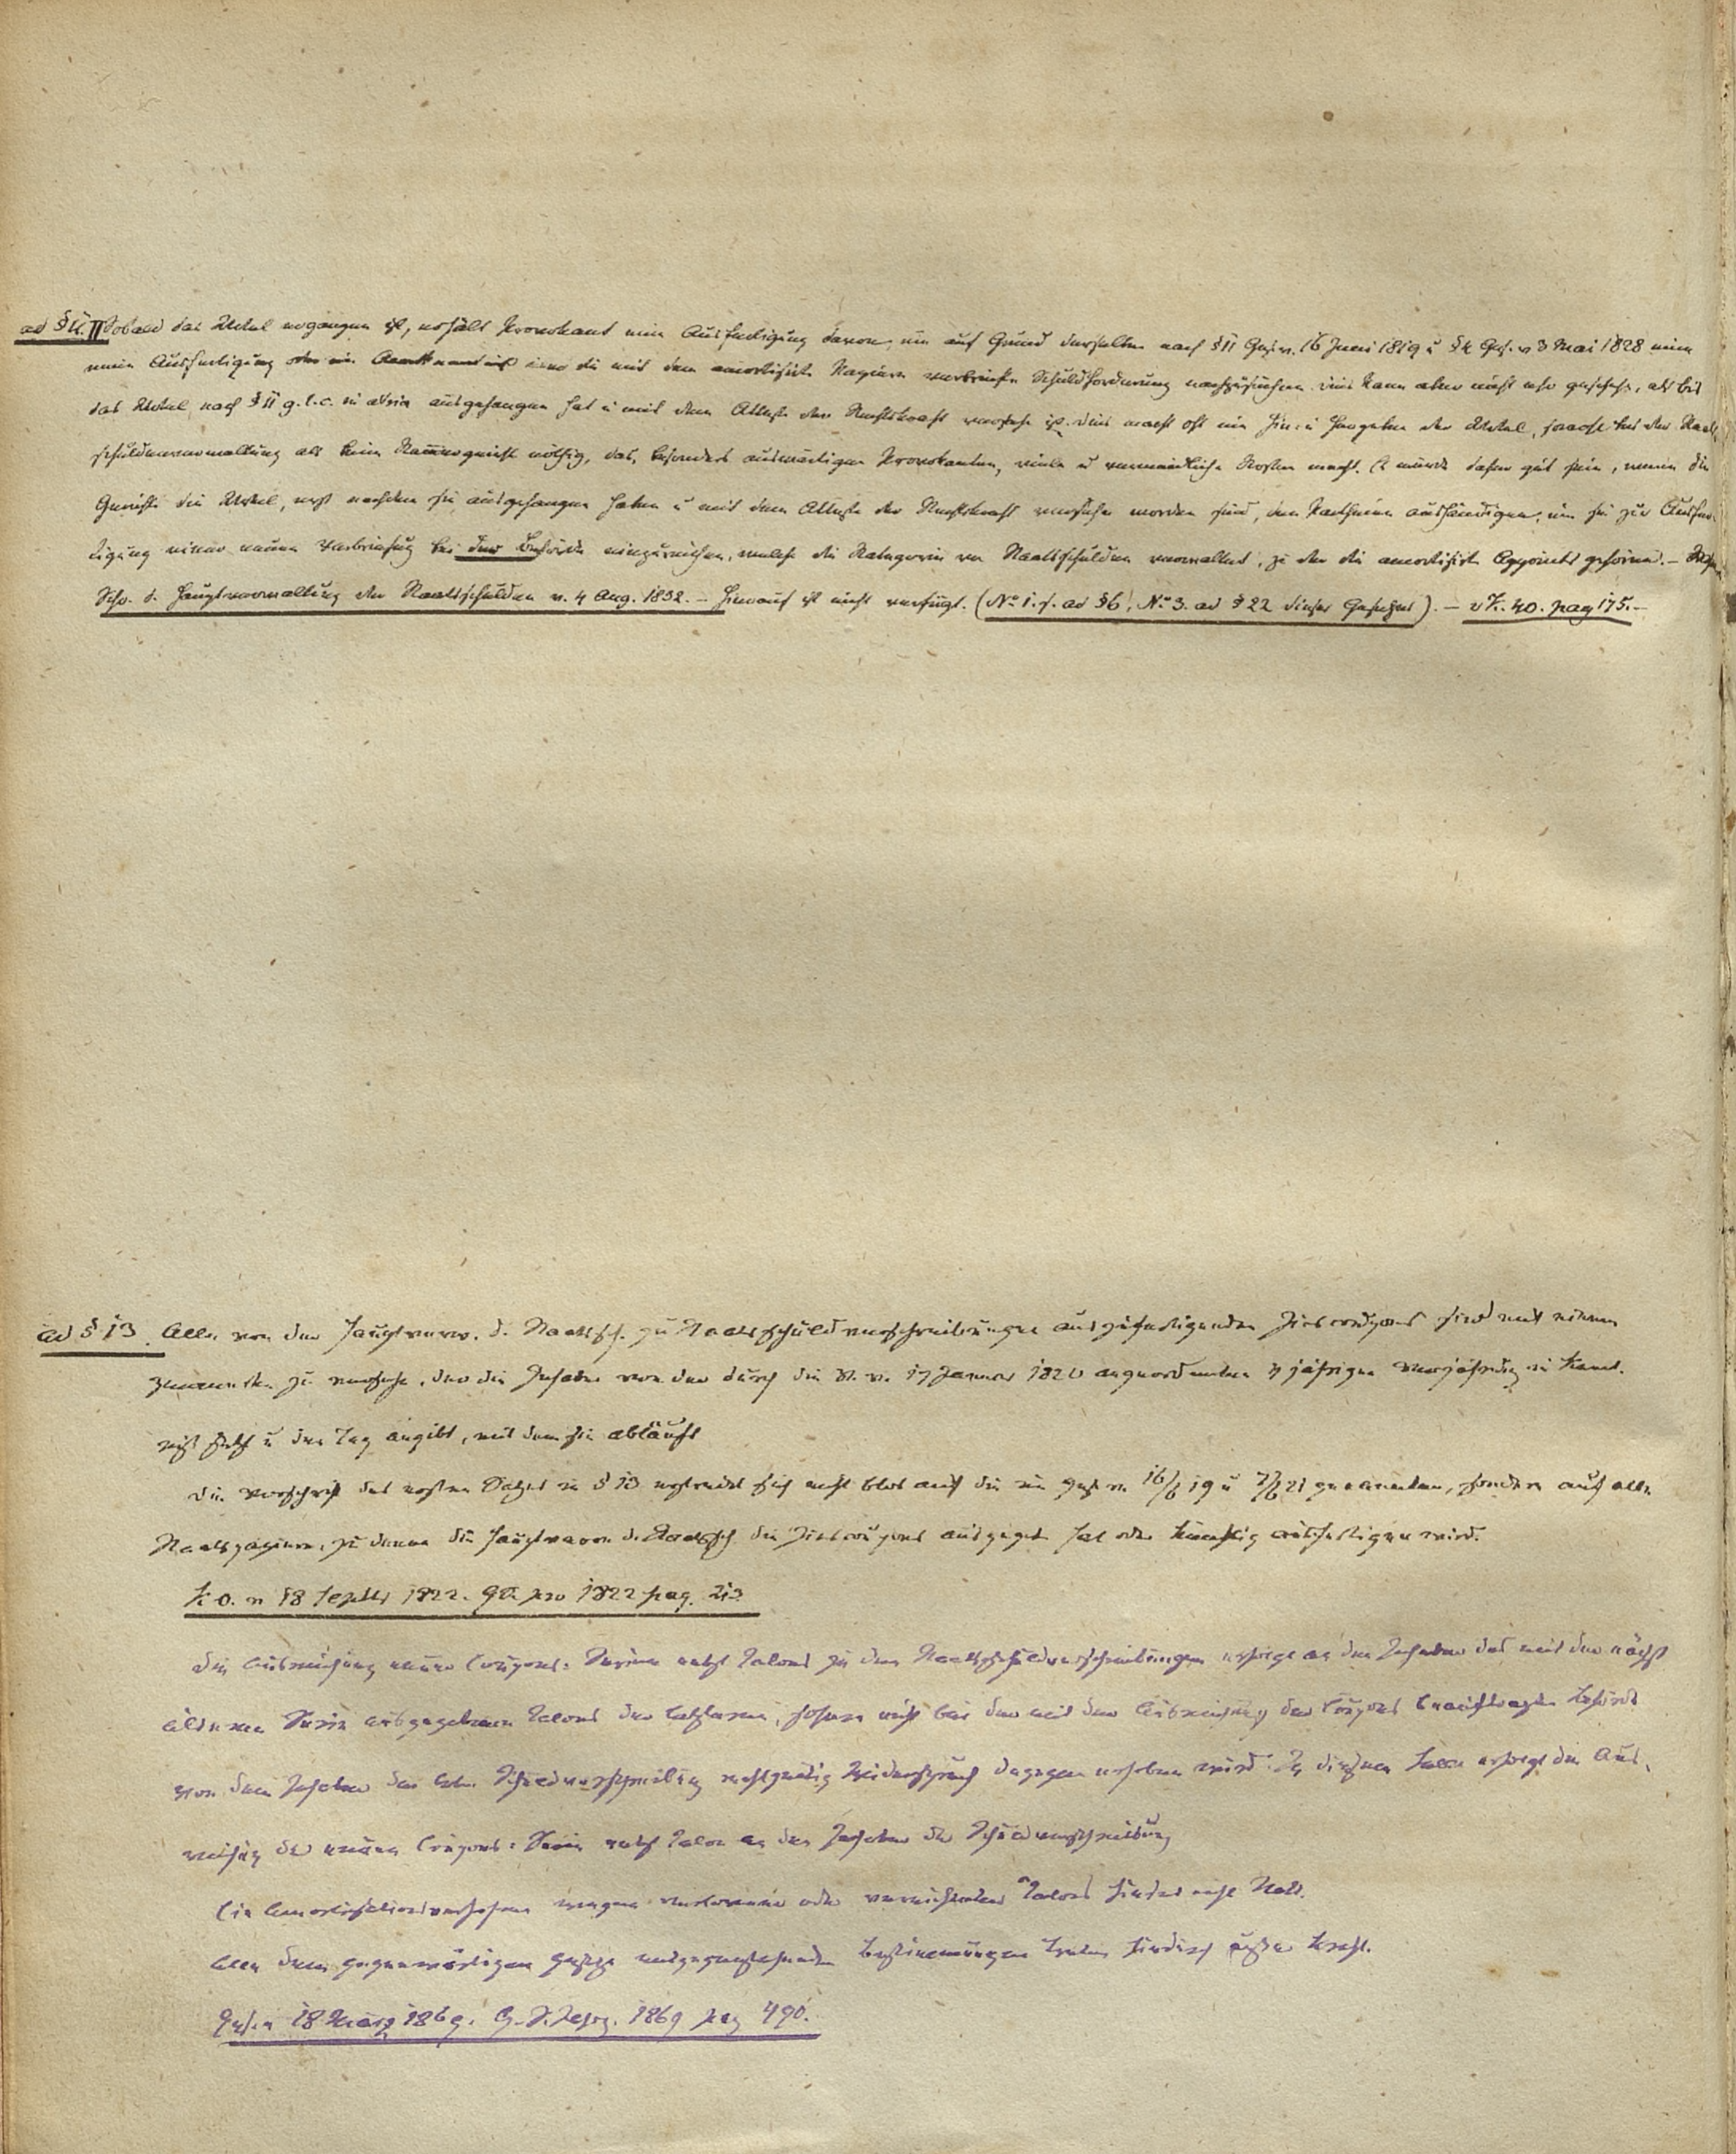 ad § 11. II Sobald das Urtel ergangen ist, erhält Provokant eine Ausfertigung davon, um auf Grund derselben nach § 11 Ges. v. 16 Juni 1819 u § 4 Ges. v 3 Mai 1828 eine
neue Ausfertigung oder ein der mit dem amortisirten Papiere verbrieften Schuldforderung nachzusuchen. Dies kann aber nicht eher geschehen, als bis
das Urtel nach § 11 g. l. c. ausgehangen hat u mit dem Atteste der Rechtskraft versehen ist. Dies macht oft ein Hin- u Hergeben der Urtel, sowohl bei der Staats
schuldenverwaltung als beim Kammergericht nöthig, das, besonders auswärtigen Provokanten, viele u vermeidliche Kosten macht. Es würde daher gut sein, wenn die
Gerichte die Urtel, erst nachdem sie ausgehangen haben u mit dem Atteste der Rechtskraft versehen worden sind, den Partheien aushändigen, um sie zur Ausfer-
tigung einer neuen Verbriefung bei der Behörde einzureichen, welche die Kategorie von Staatsschulden verwaltet, zu der die amortisirten Appoints gehören. –
Schr. d. Hauptverwaltung der Staatsschulden v. 4 Aug. 1832. – Hierauf ist nicht verfügt. (No 1. f. ad § 6, No 3. ad § 22 dieses Gesetzes). – 40. pag 175. –
ad § 13. Alle von der Hauptverw. d. Staatssch. zu Staatsschuldverschreibungen auszufertigenden Zinscoupons sind mit einem
Vermerk zu versehen, der die Inhaber von der durch die V. v. 17 Januar 1820 angeordneten 4 jährigen Verjährung in Kennt-
niß setzt u den Tag angibt, mit dem sie abläuft
Die Vorschrift des ersten Satzes in § 13 erstreckt sich nicht blos auf die im Ges. v. 16/6 19 u 7/6 21 genannten, sondern auf alle
Staatspapiere, zu denen die Hauptverw. d. Staatssch. die Zinscoupons ausgegeben hat oder künftig ausfertigen wird.
K. O. v 18 Septbr 1822. GS. pro 1822 pag. 213
Die Ausreichung neuer Coupons-Serien nebst Talons zu den Staatsschuldverschreibungen erfolgt an den Inhaber des mit der nächst
älteren Serie ausgegebenen Talons der letzteren, sofern nicht bei der mit der Ausreichung der Coupons beauftragten Behörde
von dem Inhaber der Schuldverschreibung rechtzeitig Widerspruch dagegen erhoben wird. In diesem Falle erfolgt die Aus-
reichung der neuen Coupons-Serie nebst Talon an den Inhaber der Schuldverschreibung
Ein Amortisationsverfahren wegen verlorener oder vernichteter Talons findet nicht statt.
Alle dem gegenwärtigen Gesetze entgegenstehenden Bestimmungen treten hierdurch außer Kraft.
Ges. v 18 März 1869. G. S. 1869 pag 490.